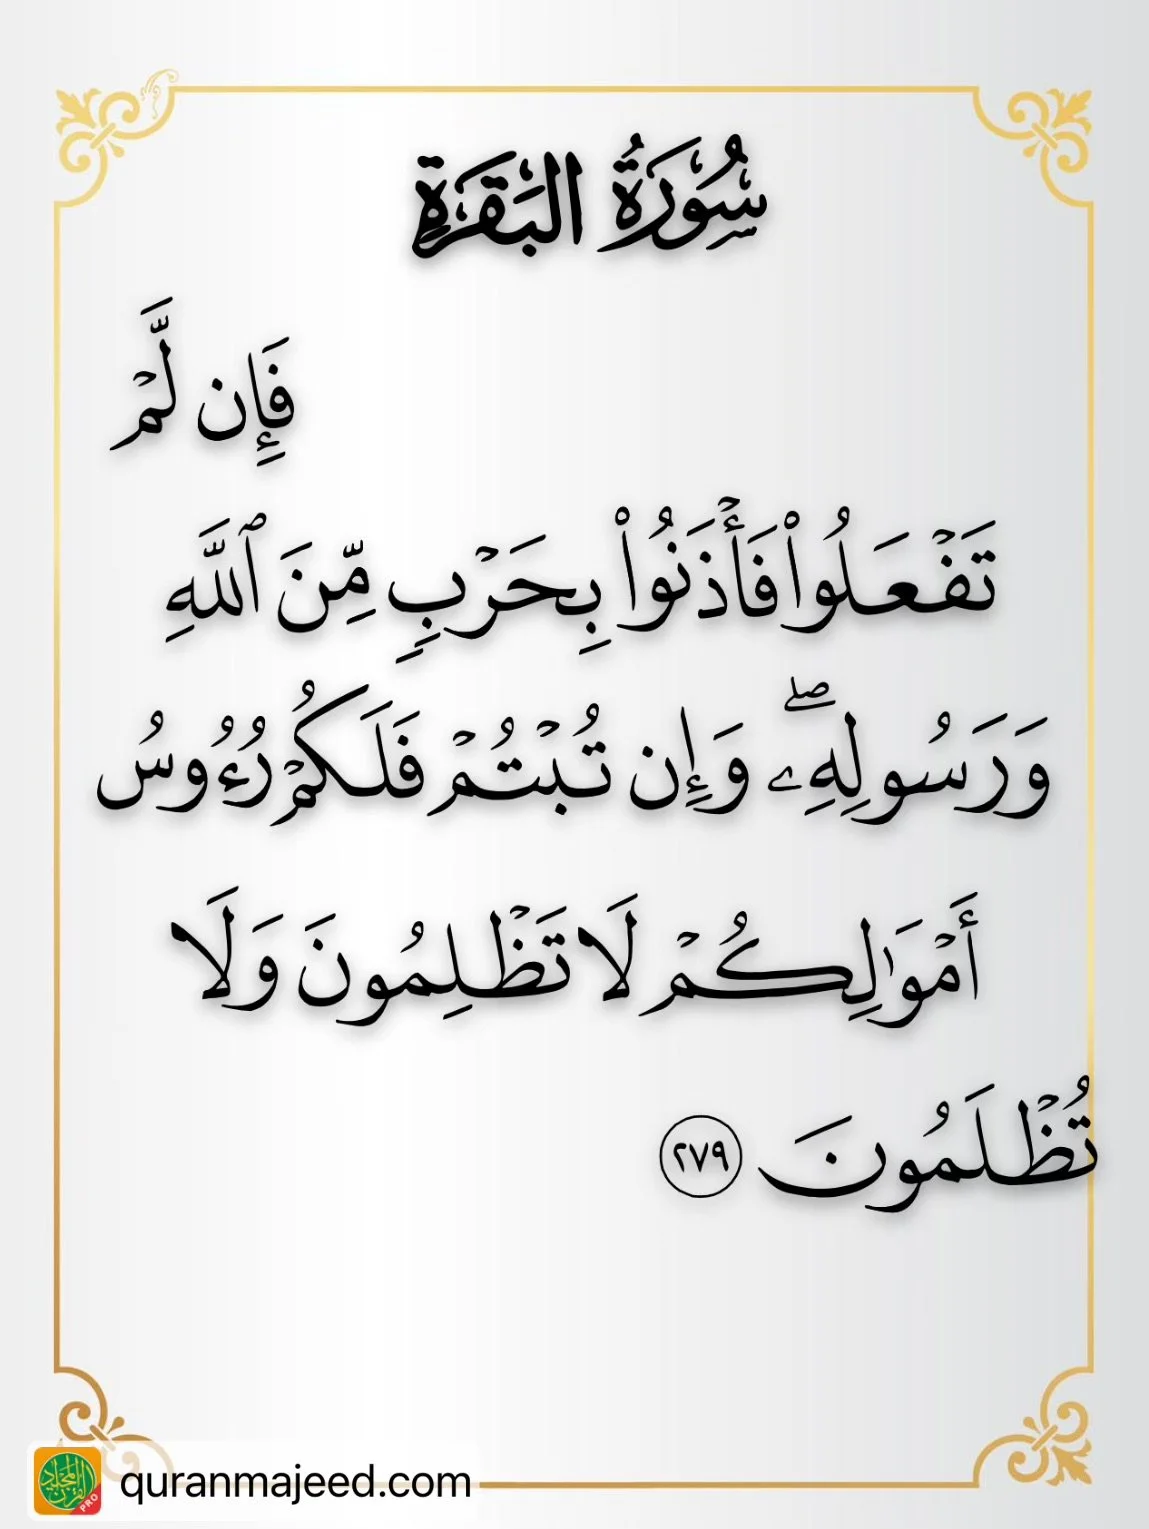 سُورَةُ البَقَرَةِ
فَإِن لَّمۡ
تَفۡعَلُوا۟ فَأۡذَنُوا۟ بِحَرۡبٍ مِّنَ ٱللَّهِ
وَرَسُولِهِۦۖ وَإِن تُبۡتُمۡ فَلَكُمۡ رُءُوسُ
أَمۡوَٰلِكُمۡ لَا تَظۡلِمُونَ وَلَا
تُظۡلَمُونَ ٢٧٩
quranmajeed.com